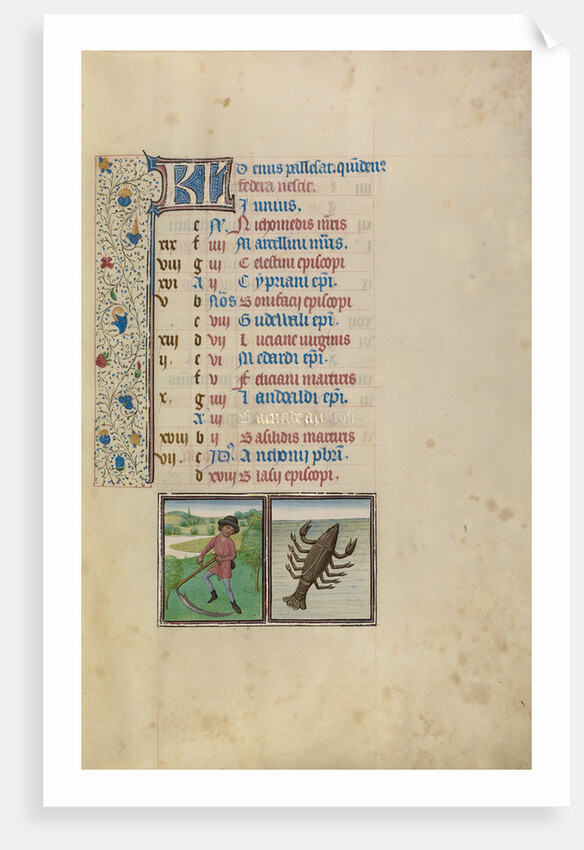 KL Denus pallescat. quindenꝰ
federa nescit.
Junius.
e N. Nichomedis mr̄is
xix f iiij Marcellini mr̄is.
viij g iij Celestini episcopi
xvi A ij Cypriani ep̄i.
v b Nōs Bonifacij episcopi
c viij Gudewali ep̄i.
xiij d vij Luciane virginis
ij. e vi Medardi ep̄i.
f v Feliciani martiris
x. g iiij Landoaldi ep̄i.
A iij
xviij b ij Basilidis martiris
vij. c Jd᷒ Anthonij pbr̄i.
d xviij Blasij episcopi.